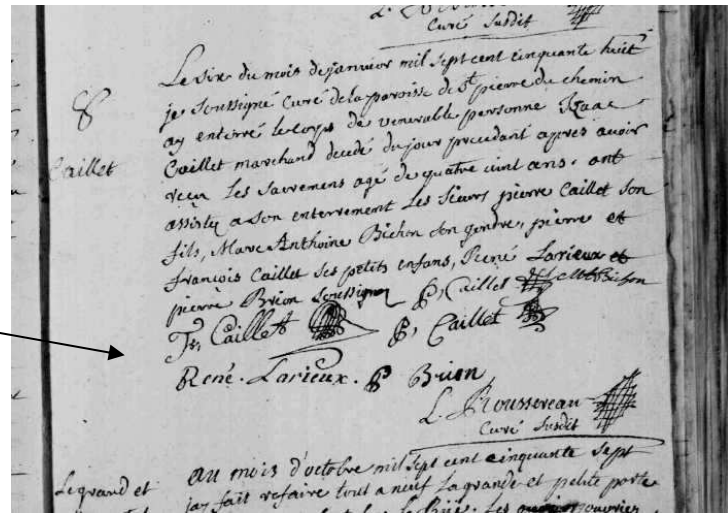 Curé susdit
Le six du mois de janvier mil sept cent cinquante huit
je soussigné curé de la paroisse de St pierre du chemin
ay enterré le corps de venerable personne Izaac
8
Caillet
Caillet marchand decedé du jour precedant apres avoir
receu les sacremens agé de quatre vint ans. ont
assisty a son enterrement les sieurs pierre Caillet son
fils, Marc Anthoine Bichon son gendre, pierre et
françois Caillet ses petits enfans, René Larieux et
pierre Brion soussignez P, Caillet Bichon
Fr, Caillet P, Caillet
René. Larieux. P Brion
L. Roussereau
Curé susdit
Le grand et
au mois d'octobre mil sept cent cinquante sept
jay fait refaire tout a neuf la grande et petite porte
Les ouvriers